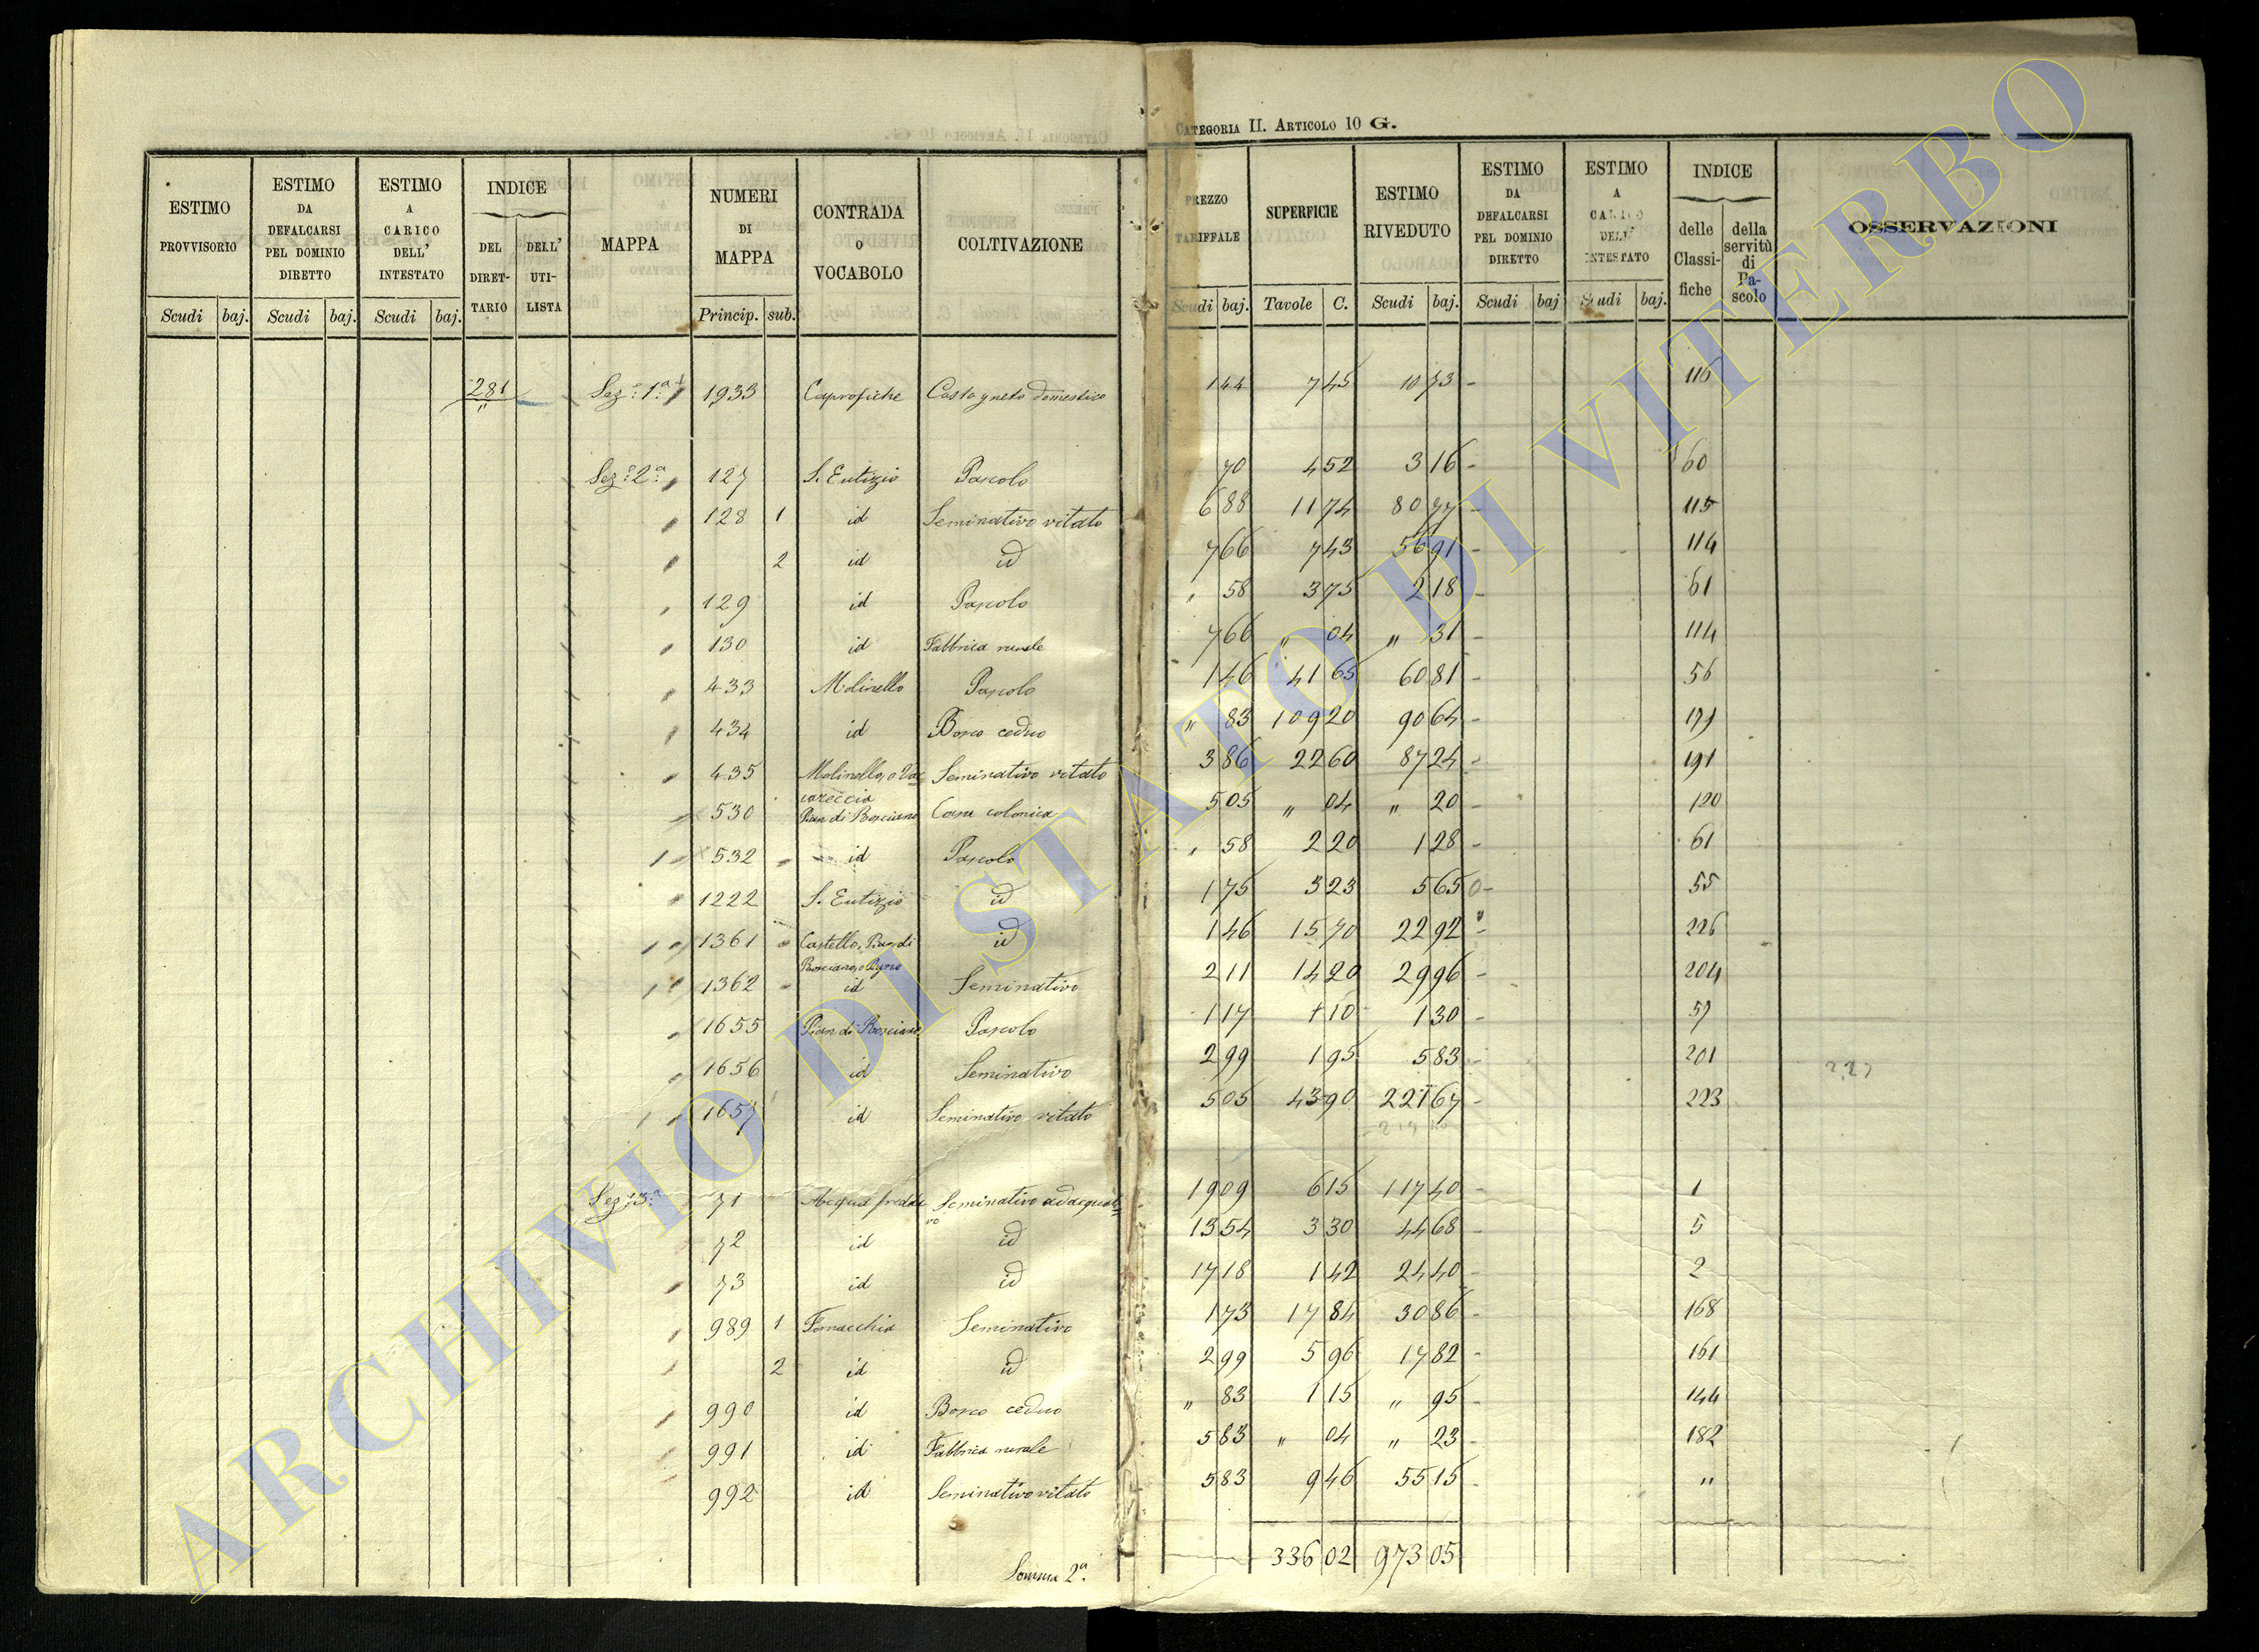 CATEGORIA II. ARTICOLO 10 G.
ESTIMO PROVVISORIO
ESTIMO DA DEFALCARSI PEL DOMINIO DIRETTO
ESTIMO A CARICO DELL' INTESTATO
INDICE
DEL DIRETTARIO
DELL' UTILISTA
MAPPA
NUMERI DI MAPPA
CONTRADA O VOCABOLO
COLTIVAZIONE
PREZZO TARIFFALE
SUPERFICIE
ESTIMO RIVEDUTO
ESTIMO DA DEFALCARSI PEL DOMINIO DIRETTO
ESTIMO A CARICO DELL' INTESTATO
INDICE
delle Classifiche
della servitù di Pascolo
OSSERVAZIONI
Scudi baj. Scudi baj. Scudi baj. Princip. sub. Scudi baj. Tavole C. Scudi baj. Scudi baj Scudi baj.
281 Sez: 1ª 1933 Caprofiche Castagneto domestico 1 44 7 45 10 73 - 116
Sez: 2ª 127 S. Eutizio Pascolo 70 4 52 3 16 - 60
128 1 id Seminativo vitato 6 88 11 74 80 77 - 115
2 id id 7 66 7 43 56 91 - 114
129 id Pascolo " 58 3 75 2 18 - 61
130 id Fabbrica rurale 7 66 " 04 " 31 - 114
433 Molinello Pascolo 1 46 41 65 60 81 - 56
434 id Bosco ceduo " 83 109 20 90 64 - 199
435 Molinello, o Vac=
careccia Seminativo vitato 3 86 22 60 87 24 - 191
530 Pian di Bosciano Casa colonica 5 05 " 04 " 20 - 120
532 id Pascolo " 58 2 20 1 28 - 61
1222 S. Eutizio id 1 75 3 23 5 65 0- 55
1361 Castello, Pian di
Bosciano, o id 1 46 15 70 22 92 - 226
1362 id Seminativo 2 11 14 20 29 96 - 204
1655 Pian di Bosciano Pascolo 1 17 1 10 1 30 - 57
1656 id Seminativo 2 99 1 95 5 83 - 201
1657 id Seminativo vitato 5 05 43 90 221 67 - 223
Sez: 3ª 71 Acqua fredda Seminativo adacquati=
vo 19 09 6 15 117 40 - 1
72 id id 13 54 3 30 44 68 - 5
73 id id 17 18 1 42 24 40 - 2
989 1 Fornacchia Seminativo 1 73 17 84 30 86 - 168
2 id id 2 99 5 96 17 82 - 161
990 id Bosco ceduo " 83 1 15 " 95 - 144
991 id Fabbrica rurale 5 83 " 04 " 23 - 182
992 id Seminativo vitato 5 83 9 46 55 15 - "
Somma 2ª. 336 02 973 05
ARCHIVIO DI STATO DI VITERBO